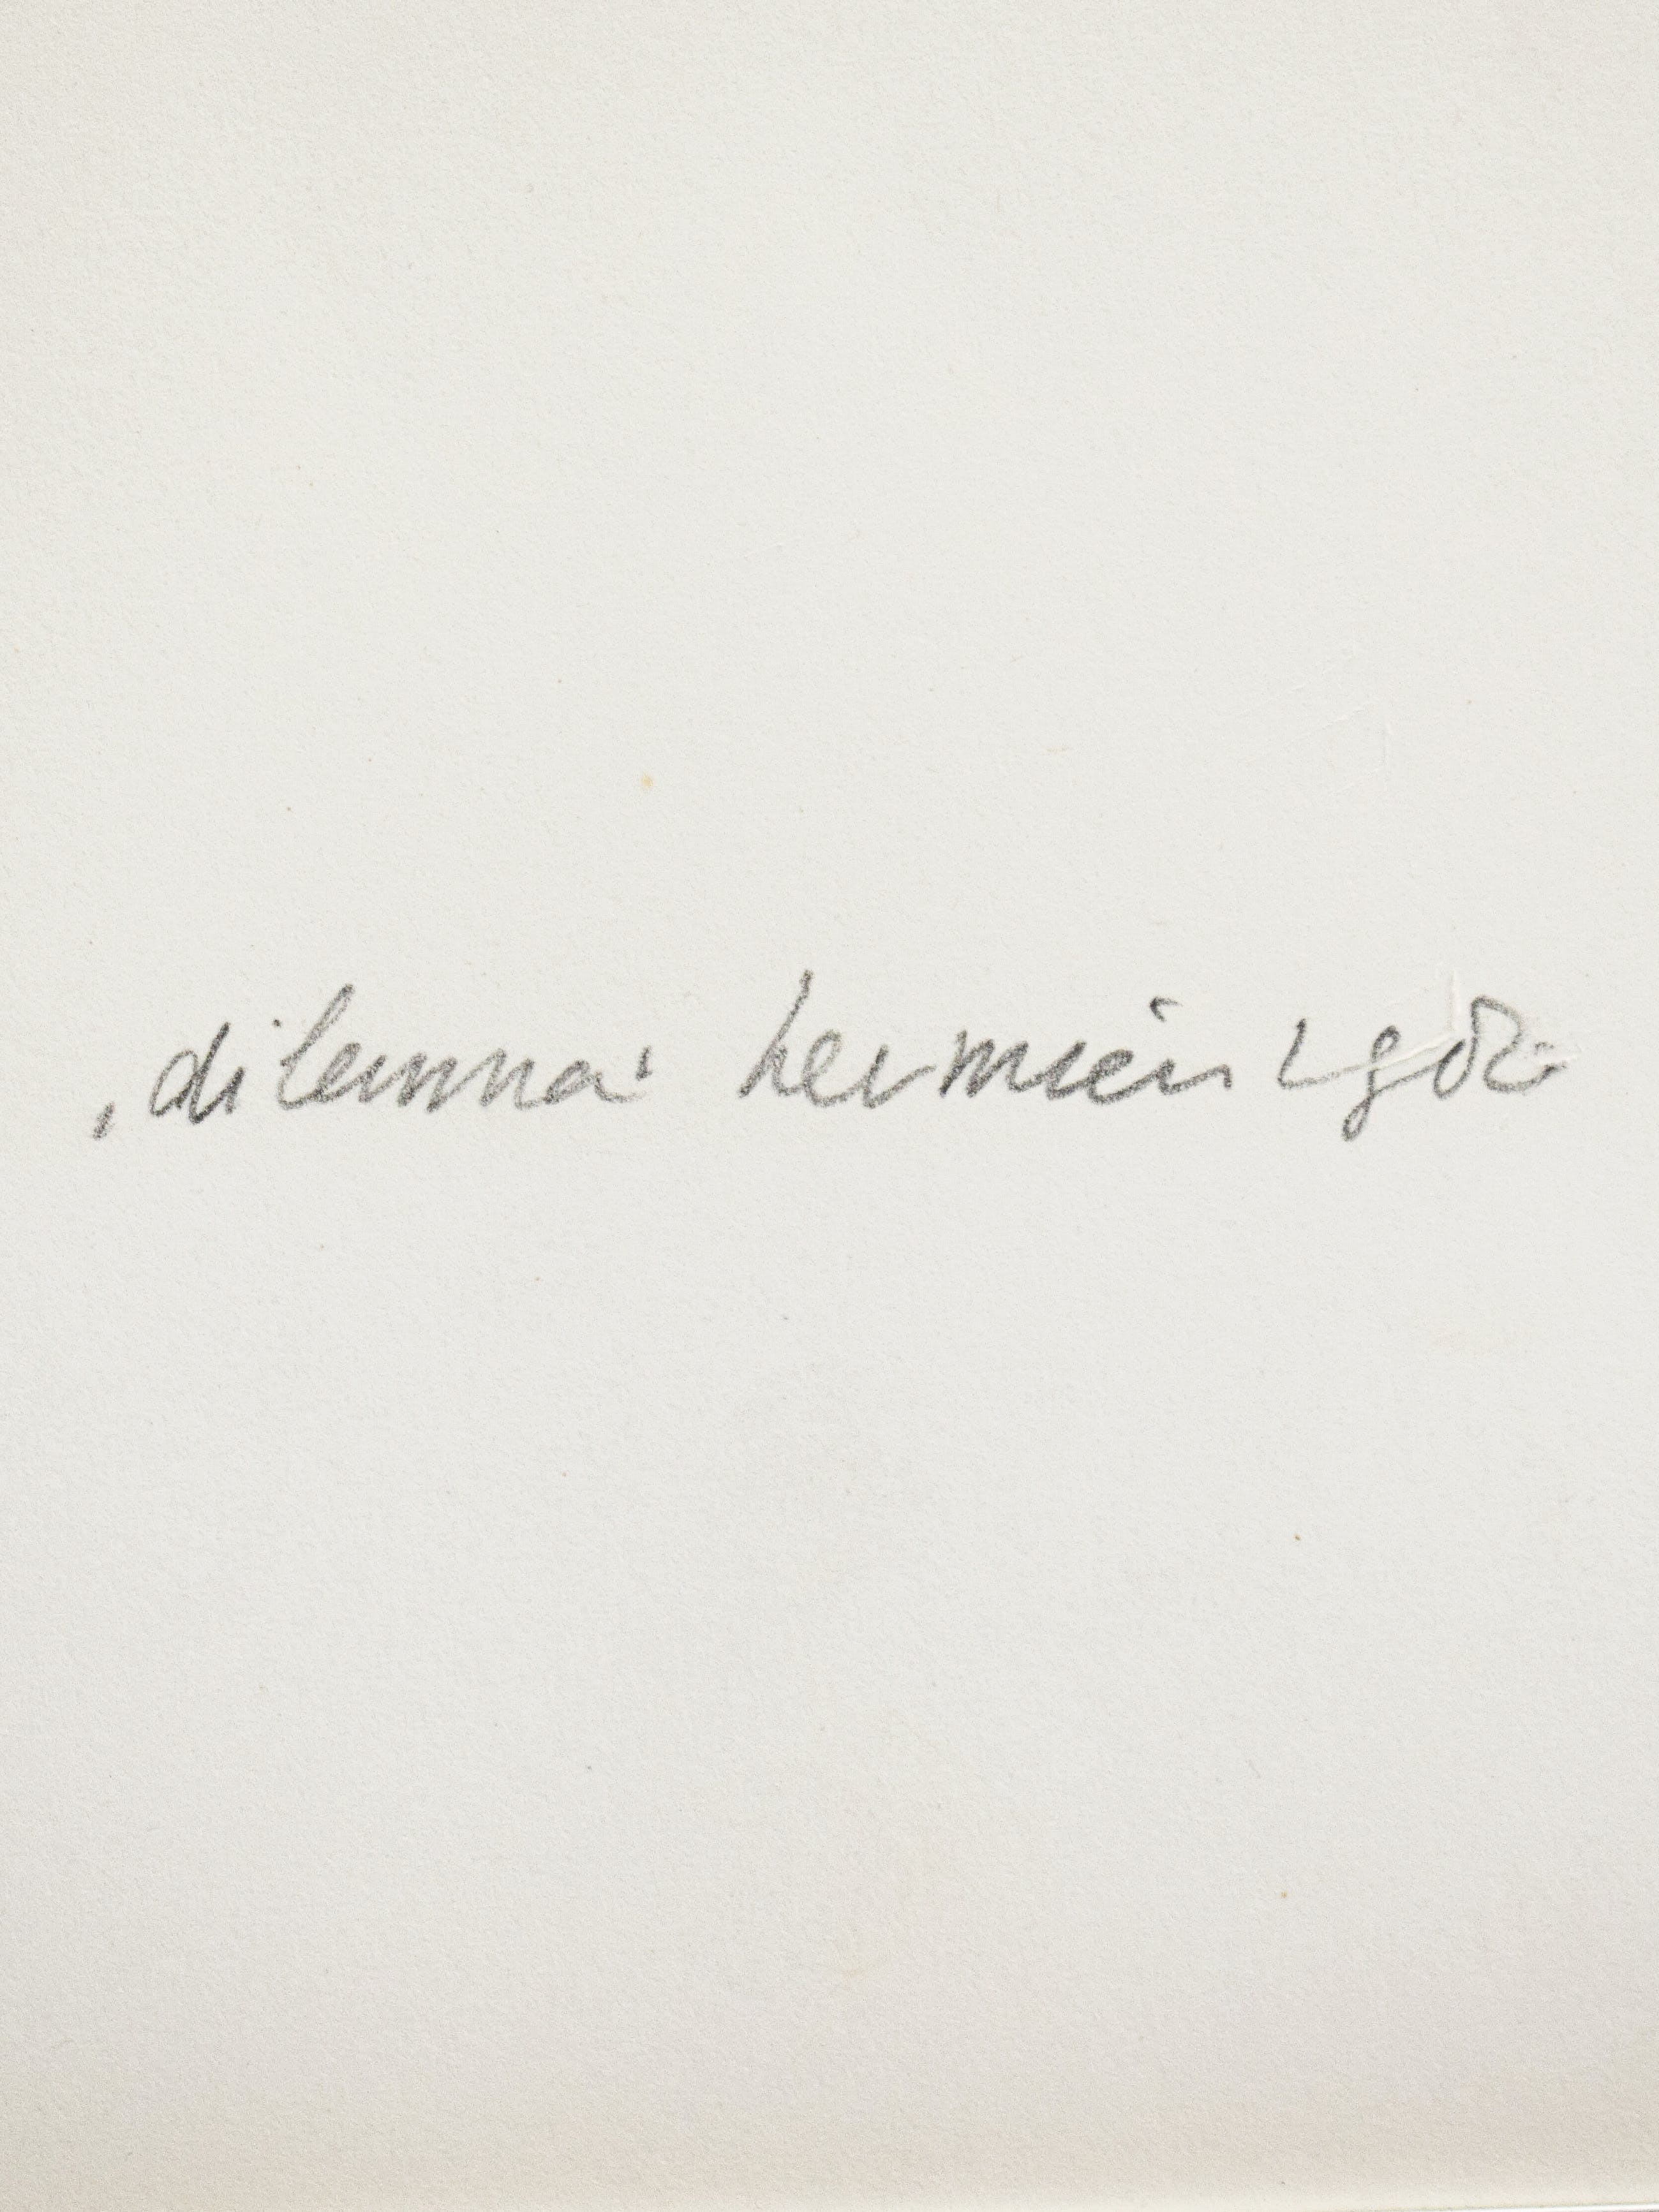 ‚dilemma‘ hermien 1980